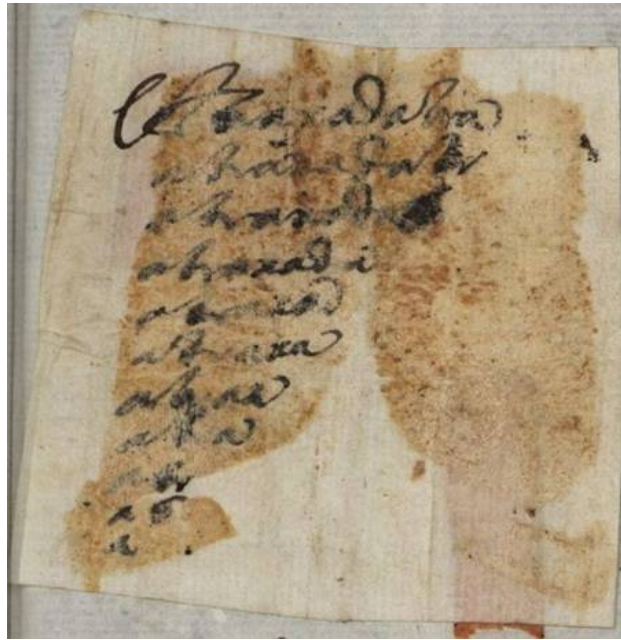 Abraxadabra
abraxadabr
abraxadab
abraxada
abraxad
abraxa
abrax
abra
abr
ab
a